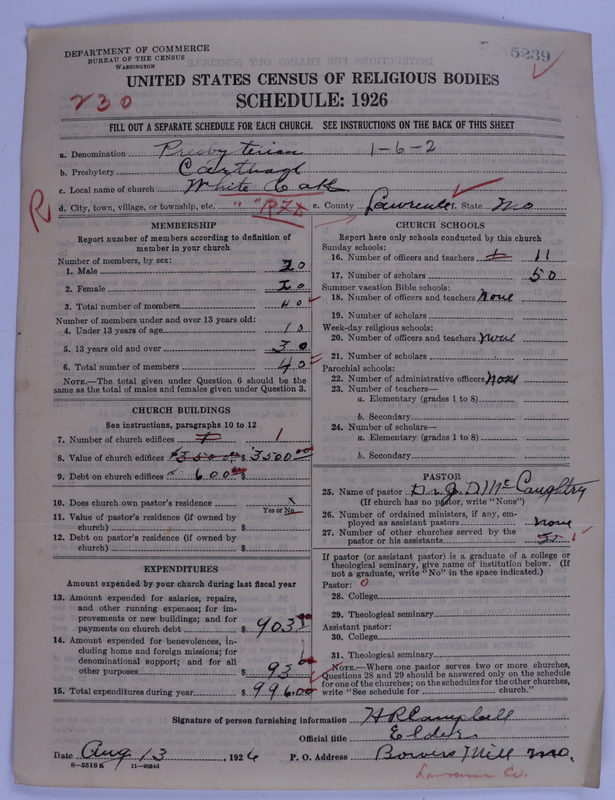 DEPARTMENT OF COMMERCE
BUREAU OF THE CENSUS
WASHINGTON
5239
UNITED STATES CENSUS OF RELIGIOUS BODIES
230
SCHEDULE: 1926
FILL OUT A SEPARATE SCHEDULE FOR EACH CHURCH. SEE INSTRUCTIONS ON THE BACK OF THIS SHEET
a. Denomination Presbyterian 1-6-2
b. Presbytery Carthage
c. Local name of church White Oak
R d. City, town, village, or township, etc. " " e. County Lawrence f. State Mo
MEMBERSHIP
Report number of members according to definition of
member in your church
Number of members, by sex:
1. Male 20
2. Female 20
3. Total number of members 40
Number of members under and over 13 years old:
4. Under 13 years of age 10
5. 13 years old and over 30
6. Total number of members 40
NOTE.—The total given under Question 6 should be the
same as the total of males and females given under Question 3.
CHURCH BUILDINGS
See instructions, paragraphs 10 to 12
7. Number of church edifices 1 1
8. Value of church edifices $3500.00 $3500.00
9. Debt on church edifices 600.00
10. Does church own pastor's residence
Yes or No
11. Value of pastor's residence (if owned by
church) $
12. Debt on pastor's residence (if owned by
church) $
EXPENDITURES
Amount expended by your church during last fiscal year
13. Amount expended for salaries, repairs,
and other running expenses; for im-
provements or new buildings; and for
payments on church debt $ 903
14. Amount expended for benevolences, in-
cluding home and foreign missions; for
denominational support; and for all
other purposes $ 93 00
15. Total expenditures during year $ 996.00
CHURCH SCHOOLS
Report here only schools conducted by this church
Sunday schools:
16. Number of officers and teachers 11
17. Number of scholars 50
Summer vacation Bible schools:
18. Number of officers and teachers None
19. Number of scholars
Week-day religious schools:
20. Number of officers and teachers None
21. Number of scholars
Parochial schools:
22. Number of administrative officers None
23. Number of teachers—
a. Elementary (grades 1 to 8)
b. Secondary
24. Number of scholars—
a. Elementary (grades 1 to 8)
b. Secondary
PASTOR
25. Name of pastor Dr. J. D. McCaughtry
(If church has no pastor, write "None")
26. Number of ordained ministers, if any, em-
ployed as assistant pastors none
27. Number of other churches served by the
pastor or his assistants
If pastor (or assistant pastor) is a graduate of a college or
theological seminary, give name of institution below. (If
not a graduate, write "No" in the space indicated.)
Pastor: 0
28. College
29. Theological seminary
Assistant pastor:
30. College
31. Theological seminary
NOTE.—Where one pastor serves two or more churches,
Questions 28 and 29 should be answered only on the schedule
for one of the churches; on the schedules for the other churches,
write "See schedule for church."
Signature of person furnishing information H R Campbell
Official title Elder
Date Aug 13, 1926 P. O. Address Bowers Mill Mo.
8-5518a 11-9084d
Lawrence Co.